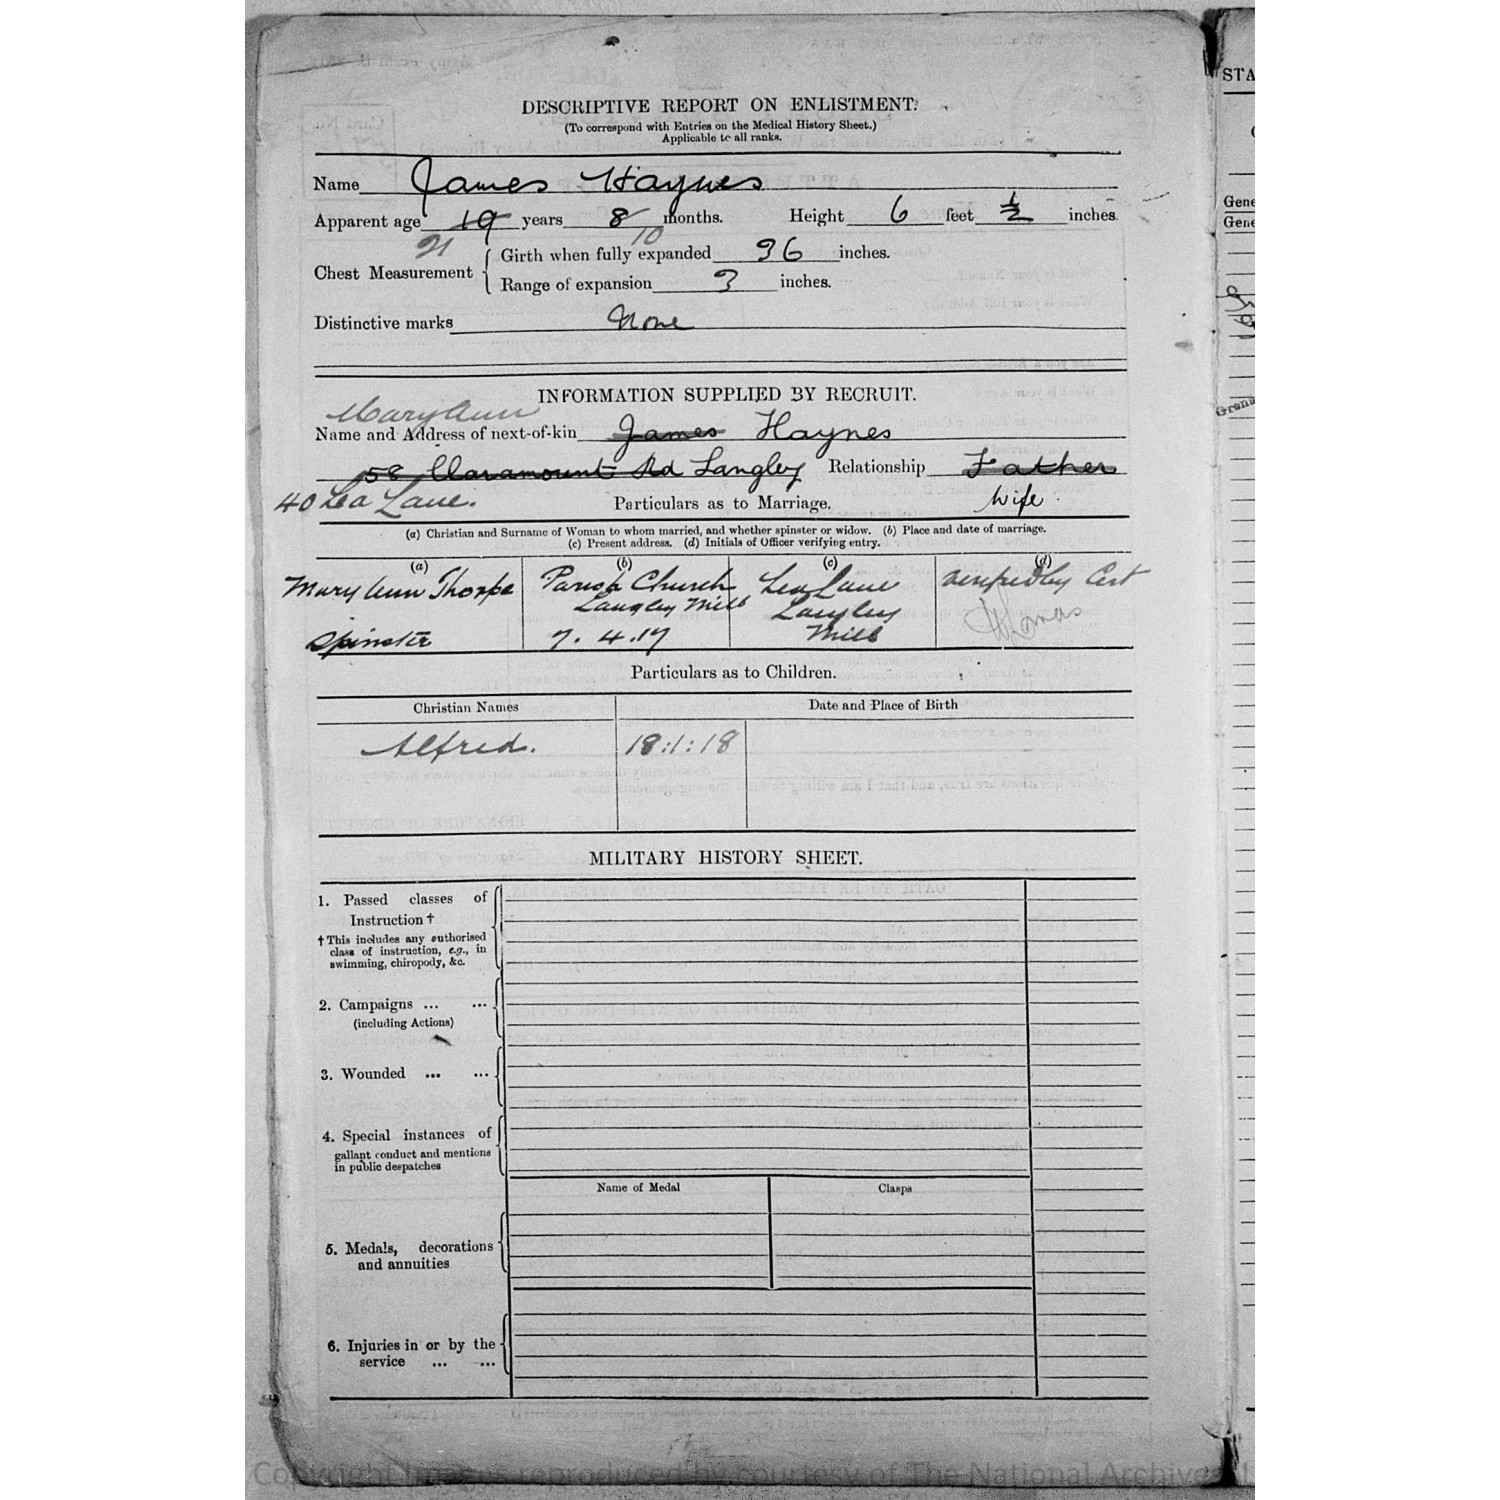 DESCRIPTIVE REPORT ON ENLISTMENT.
(To correspond with Entries on the Medical History Sheet.)
Applicable to all ranks.
Name James Haynes
Apparent age 19 years 8 months. Height 6 feet ½ inches.
21 10
Chest Measurement
Girth when fully expanded 36 inches.
Range of expansion 3 inches.
Distinctive marks None
INFORMATION SUPPLIED BY RECRUIT.
Mary Ann
Name and Address of next-of-kin James Haynes
58 Claramount Rd Langley Relationship Father
40 Lea Lane. Particulars as to Marriage. Wife.
(a) Christian and Surname of Woman to whom married, and whether spinster or widow. (b) Place and date of marriage.
(c) Present address. (d) Initials of Officer verifying entry.
(a) (b) (c) (d)
Mary Ann Thorpe Parish Church Lea Lane verified by Cert
Langley Mill Langley
Spinster 7.4.17 Mill
Particulars as to Children.
Christian Names Date and Place of Birth
Alfred. 18:1:18
MILITARY HISTORY SHEET.
1. Passed classes of
Instruction †
† This includes any authorised
class of instruction, e.g., in
swimming, chiropody, &c.
2. Campaigns ... ...
(including Actions)
3. Wounded ... ...
4. Special instances of
gallant conduct and mentions
in public despatches
Name of Medal Clasps
5. Medals, decorations
and annuities
6. Injuries in or by the
service ... ...
STA
Gene
Gene
Copyright Images reproduced by courtesy of The National Archives